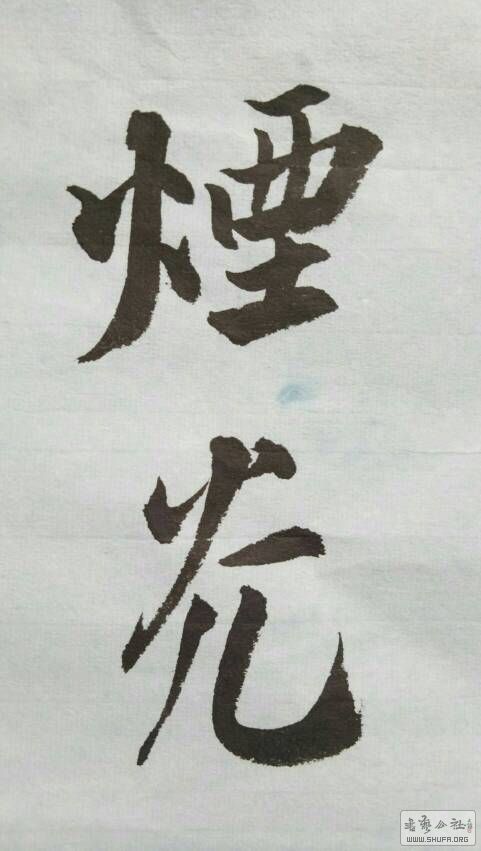 煙
光
书艺公社
WWW.SHUFA.ORG